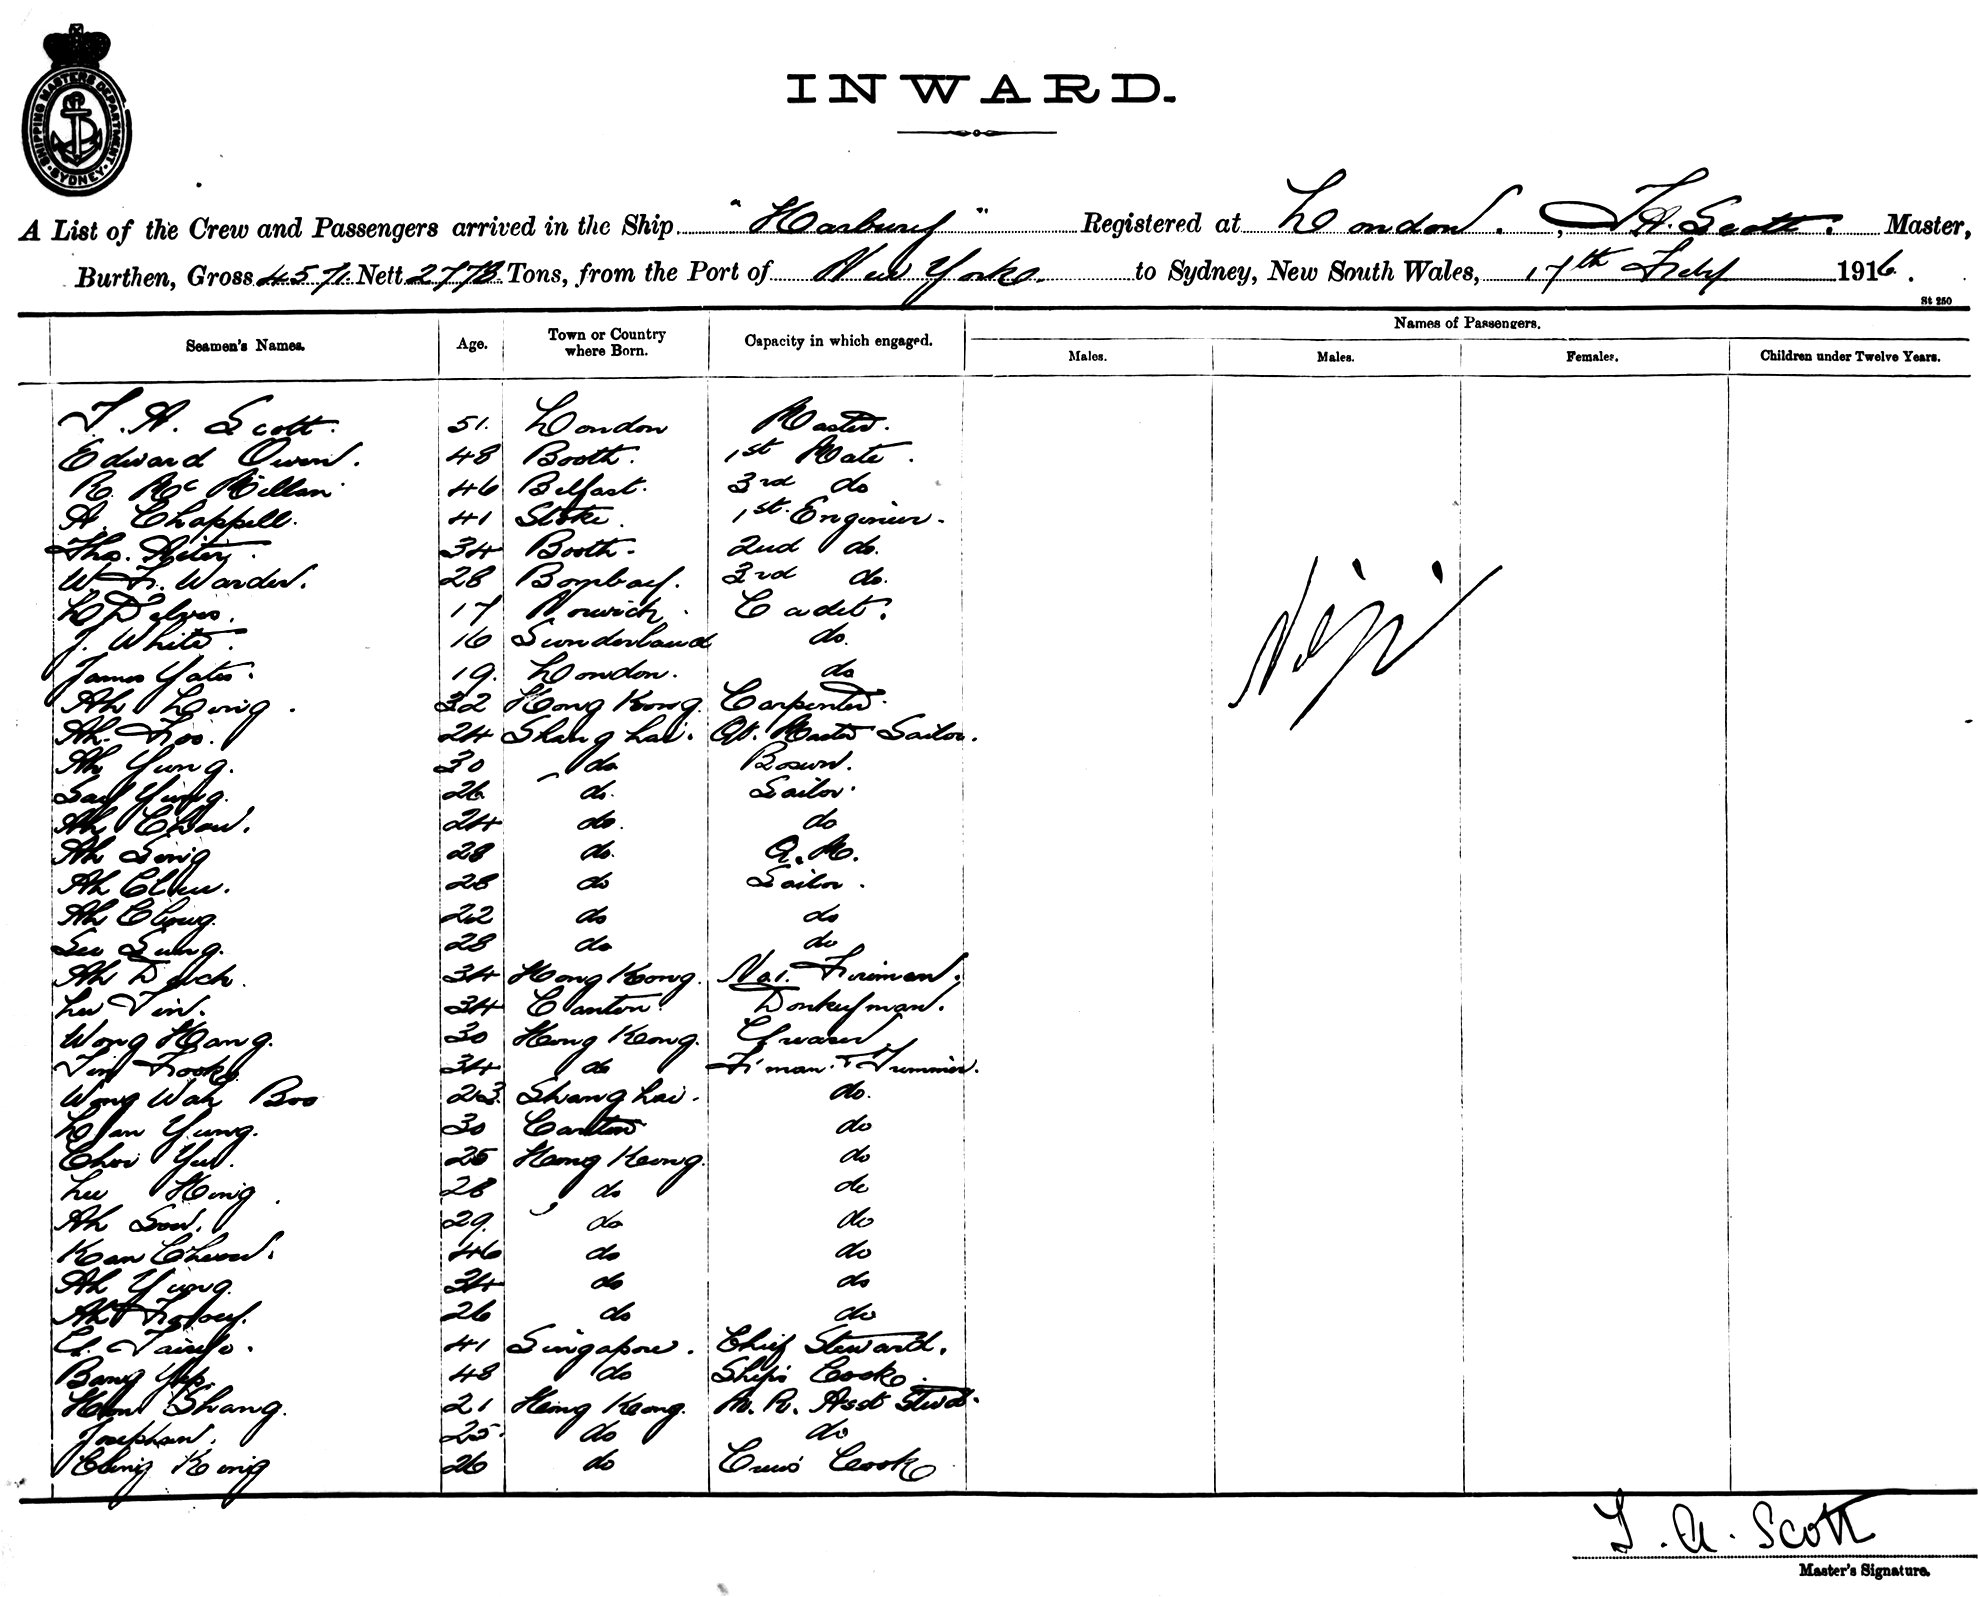 SHIPPING MASTERS DEPARTMENT SYDNEY
INWARD.
A List of the Crew and Passengers arrived in the Ship "Harbury" Registered at London. T. A. Scott. Master,
Burthen, Gross 4571. Nett 2773 Tons, from the Port of New York. to Sydney, New South Wales, 17th Feby 1916.
St 250
Seamen's Names. Age. Town or Country where Born. Capacity in which engaged. Names of Passengers.
Males. Males. Females. Children under Twelve Years.
T. A. Scott. 51. London Master.
Edward Owen. 48 Booth. 1st Mate.
R. McMillan 46 Belfast. 3rd do
A. Chappell. 41 Stoke. 1st Engineer.
Thos. 34 Booth. 2nd do.
W. F. Warden. 28 Bombay. 3rd do.
L. Delves. 17 Norwich. Cadet.
J. White. 16 Sunderland do.
James Yates. 19. London. do
Ah Ling. 32 Hong Kong. Carpenter.
Ah. Foo. 24 Shanghai. Qr. Master Sailor.
Ah Yung. 30 do Bosun.
Say Yung. 26 do. Sailor.
Ah Chow. 24 do. do
Ah Sing 28 do. Q. M.
Ah Chew. 28 do Sailor.
Ah Chong. 22 do do
See Sung. 28 do do
Ah 34 Hong Kong. No 1. Fireman.
Lee Tin. 34 Canton. Donkeyman.
Wong Hang. 30 Hong Kong. Greaser.
Tin Fook. 34 do F'man & Trimmer.
Wong Wah Boo 23. Shanghai. do.
Lan Yung. 30 Canton do
Choi Yee. 25 Hong Kong. do
Lee Hing. 28 do do
Ah Sow. 29. do do
Kan Cheow. 46 do do
Ah Yung. 34 do do
Ah 26 do do
41 Singapore. Chief Steward.
Bang Yep. 48 do Ship's Cook.
Shang. 21 Hong Kong. M. R. Asst Stwd.
Josephan. 25. do do
Ching King 26 do Crew's Cook
Nil
T. A. Scott
Master's Signature.